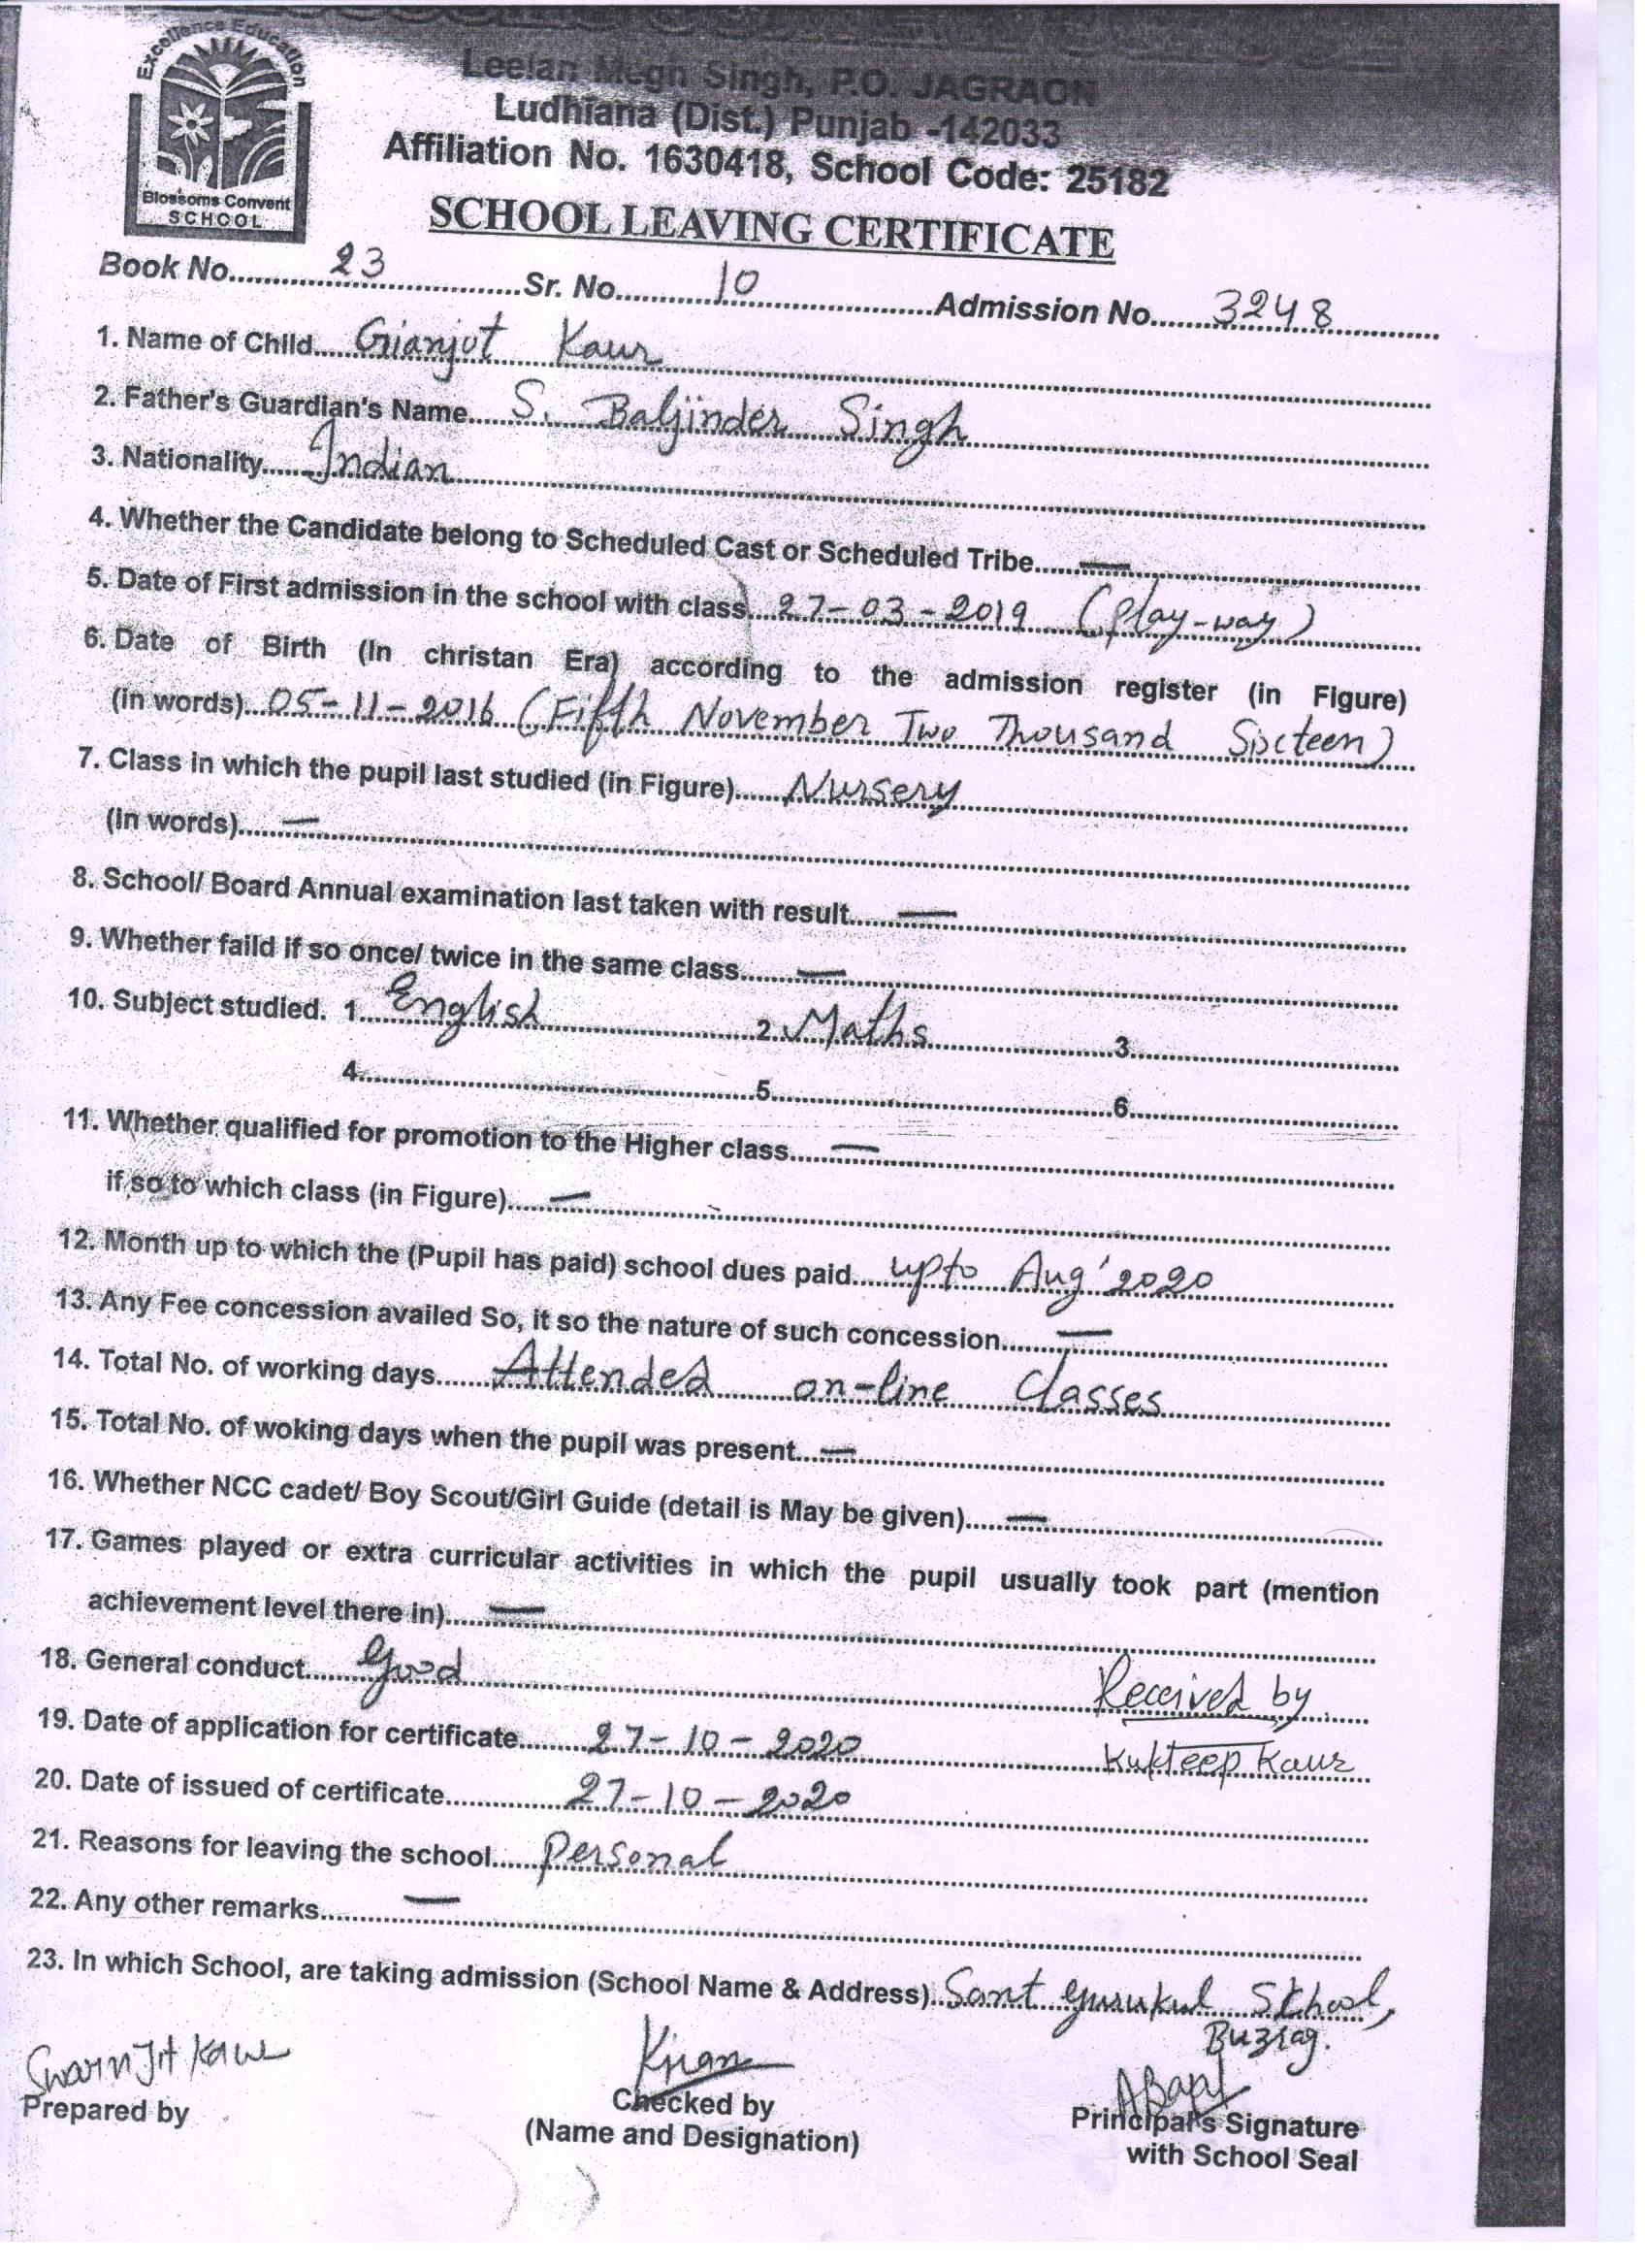 Excellence Education
Blossoms Convent
SCHOOL
Leelan Megh Singh, P.O. JAGRAON
Ludhiana (Dist.) Punjab -142033
Affiliation No. 1630418, School Code: 25182
SCHOOL LEAVING CERTIFICATE
Book No. 23 Sr. No. 10 Admission No. 3248
1. Name of Child Gianjot Kaur
2. Father's Guardian's Name S. Baljinder Singh
3. Nationality Indian
4. Whether the Candidate belong to Scheduled Cast or Scheduled Tribe —
5. Date of First admission in the school with class 27-03-2019 (Play-way)
6. Date of Birth (In christan Era) according to the admission register (in Figure)
(in words) 05-11-2016 (Fifth November Two Thousand Sixteen)
7. Class in which the pupil last studied (in Figure) Nursery
(In words) —
8. School/ Board Annual examination last taken with result —
9. Whether faild if so once/ twice in the same class —
10. Subject studied. 1. English 2. Maths 3.
4. 5. 6.
11. Whether qualified for promotion to the Higher class —
if so to which class (in Figure) —
12. Month up to which the (Pupil has paid) school dues paid upto Aug' 2020
13. Any Fee concession availed So, it so the nature of such concession —
14. Total No. of working days Attended on-line Classes
15. Total No. of woking days when the pupil was present —
16. Whether NCC cadet/ Boy Scout/Girl Guide (detail is May be given) —
17. Games played or extra curricular activities in which the pupil usually took part (mention
achievement level there in) —
18. General conduct Good Received by
19. Date of application for certificate 27-10-2020 Kaur
20. Date of issued of certificate 27-10-2020
21. Reasons for leaving the school Personal
22. Any other remarks —
23. In which School, are taking admission (School Name & Address) Sant Gurukul School,
Buzrag.
Swarnjit Kaur Kiran
Prepared by Checked by Principal's Signature
(Name and Designation) with School Seal